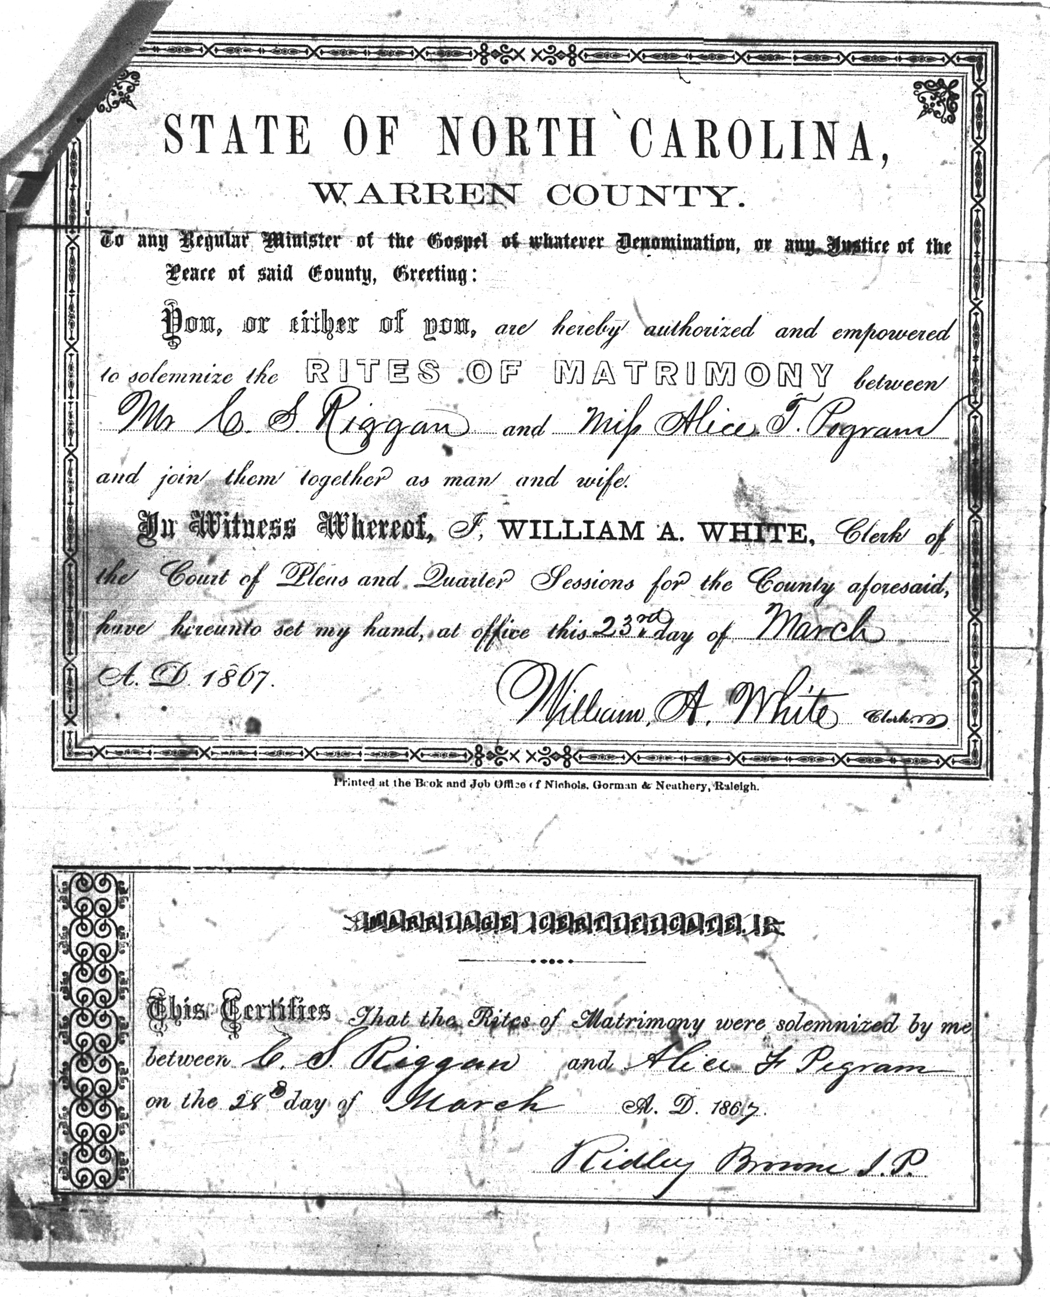 STATE OF NORTH CAROLINA,
WARREN COUNTY.
To any Regular Minister of the Gospel of whatever Denomination, or any Justice of the
Peace of said County, Greeting:
You, or either of you, are hereby authorized and empowered
to solemnize the RITES OF MATRIMONY between
Mr C. S. Riggan and Miss Alice T. Pegram
and join them together as man and wife.
In Witness Whereof, I, WILLIAM A. WHITE, Clerk of
the Court of Pleas and Quarter Sessions for the County aforesaid,
have hereunto set my hand, at office this 23rd day of March
A. D. 1867.
William A. White Clerk
Printed at the Book and Job Office of Nichols, Gorman & Neathery, Raleigh.
MARRIAGE CERTIFICATE.
This Certifies That the Rites of Matrimony were solemnized by me
between C. S. Riggan and Alice F Pegram
on the 28 day of March A. D. 1867.
Ridley Browne J. P.